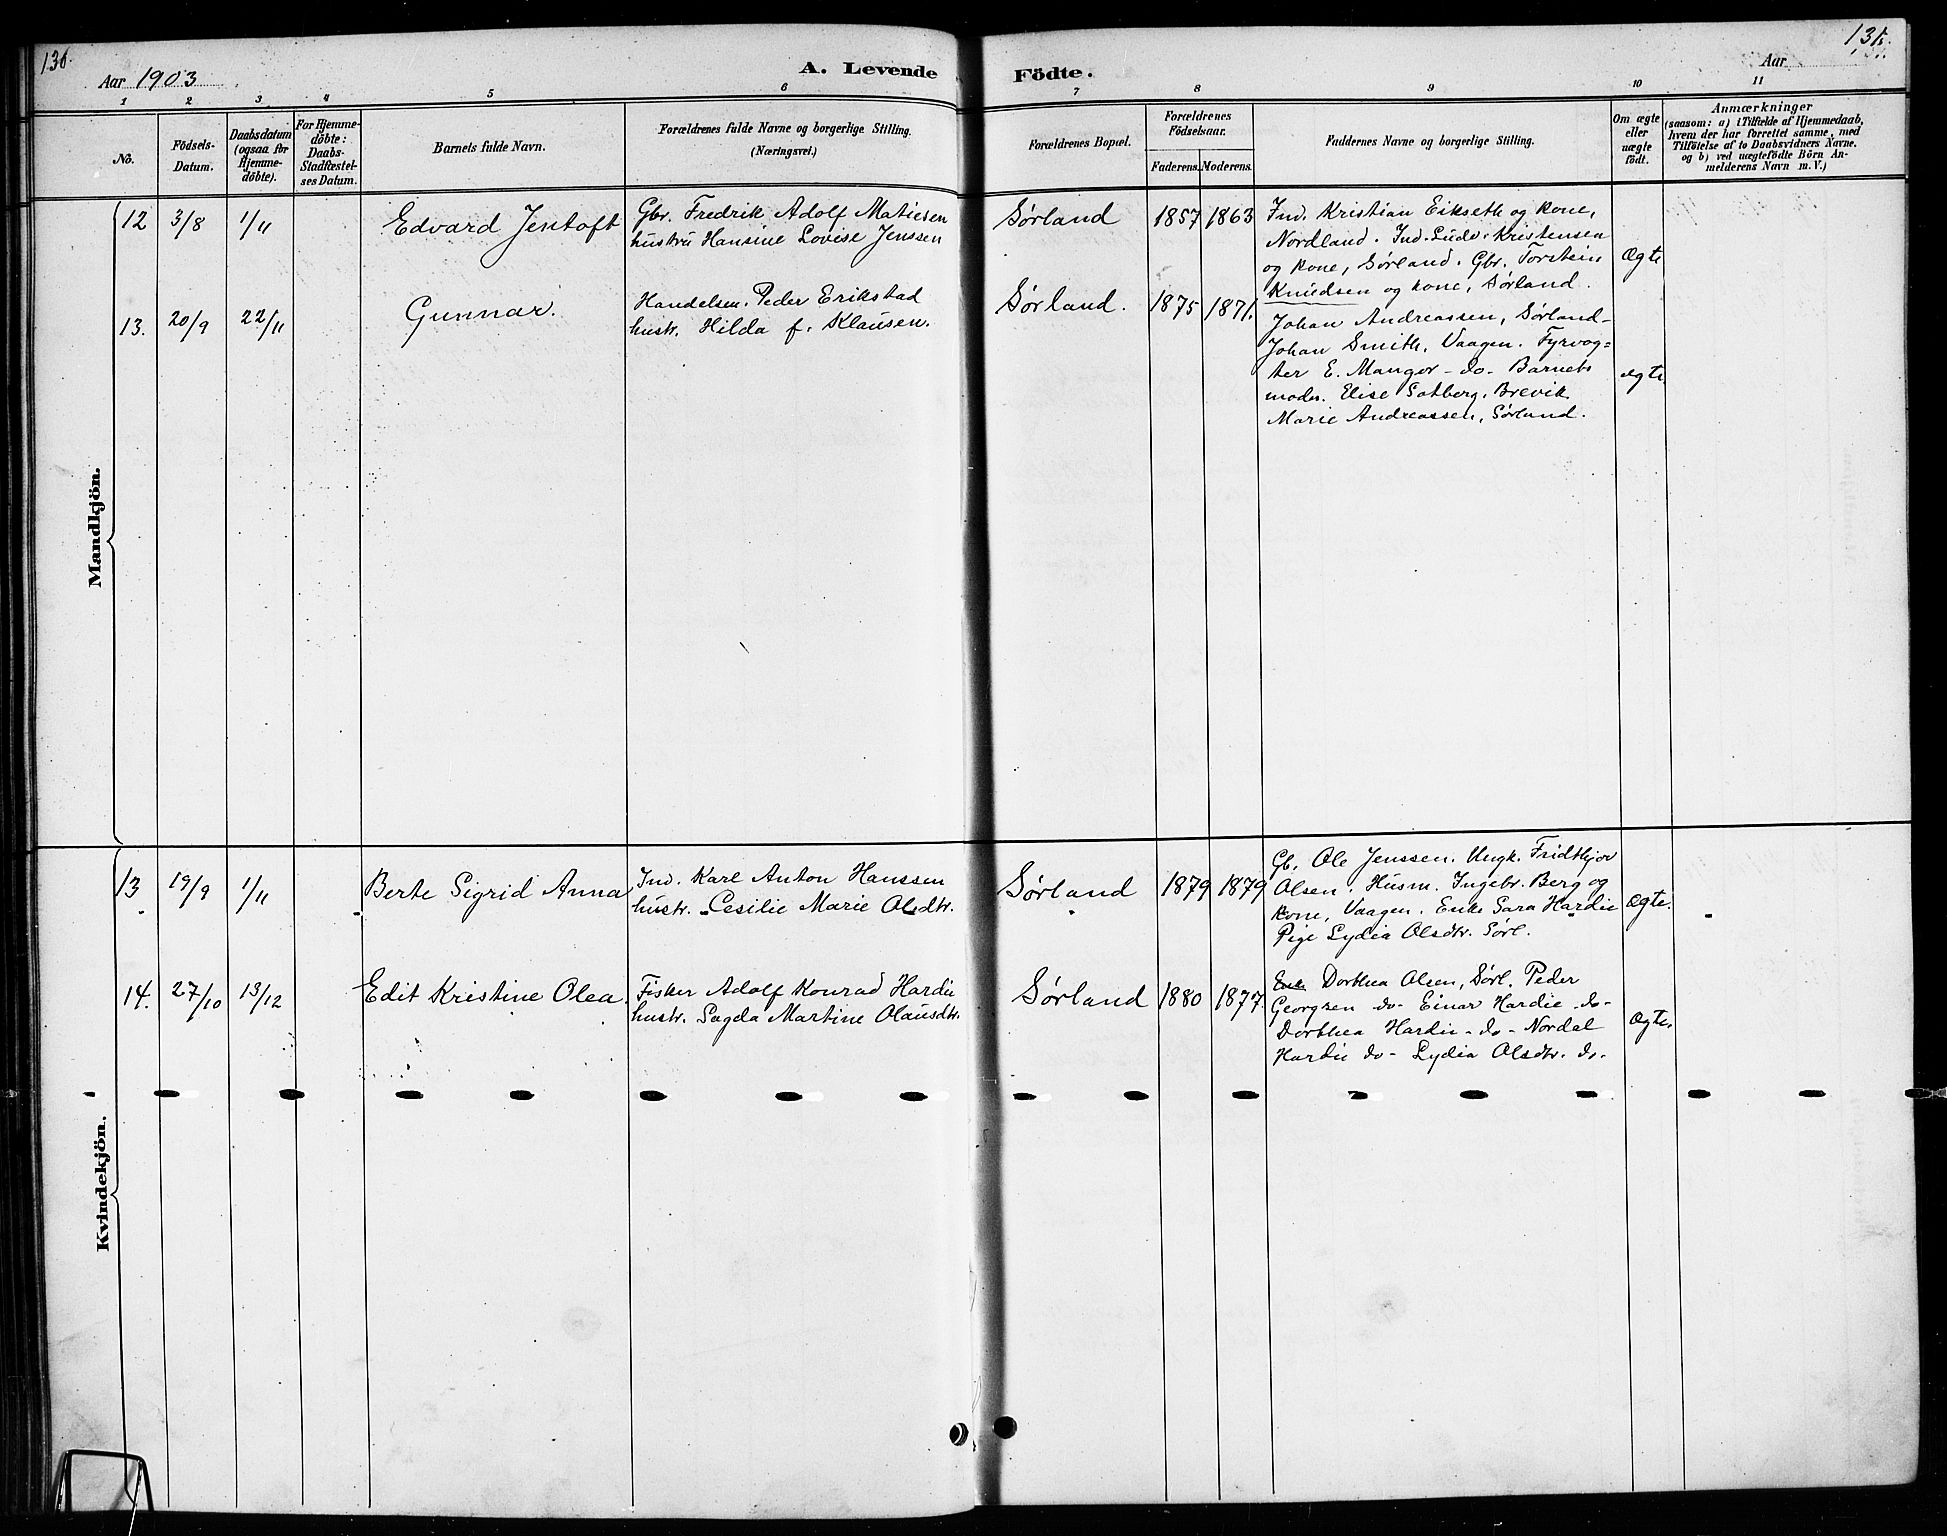 130.
131.
Aar 1903
A. Levende
Födte.
Aar
1 2 3 4 5 6 7 8 9 10 11
No.
Födsels-
Datum.
Daabsdatum
(ogsaa for
Hjemme-
döbte).
For Hjemme-
döbte:
Daabs-
Stadfæstel-
ses Datum.
Barnets fulde Navn.
Forældrenes fulde Navne og borgerlige Stilling.
(Næringsvei.)
Forældrenes Bopæl.
Forældrenes
Födselsaar.
Faderens. Moderens.
Faddernes Navne og borgerlige Stilling.
Om ægte
eller
uægte
födt.
Anmærkninger
(saasom: a) i Tilfælde af Hjemmedaab,
hvem der har forrettet samme, med
Tilföielse af to Daabsvidners Navne.
og b) ved uægtefödte Börn An-
melderens Navn m. V.)
Mandkjön.
12 3/8 1/11 Edvard Jentoft
Gbr. Fredrik Adolf Matiesen
hustru Hansine Lovise Jenssen
Sørland 1857 1863
Ind. Kristian Eikseth og kone,
Nordland. Ind. Ludv. Kristensen
og kone, Sørland. Gbr. Torstein
Knudsen og kone, Sørland.
Ægte
13. 20/9 22/11 Gunnar.
Handelsm. Peder Erikstad
hustr. Hilda f. Klausen.
Sørland. 1875 1871.
Johan Andreassen, Sørland-
Johan Smith, Vaagen. Fyrvog=
ter E. Mangor - do - Barnets
moder. Elise Sotberg, Brevik
Marie Andreassen, Sørland.
ægte
Kvindekjön.
13 19/9 1/11 Berte Sigrid Anna
Ind. Karl Anton Hanssen
hustr. Cesilie Marie Olsdtr.
Sørland 1879 1879
Gb. Ole Jenssen. Ungk. Fridthjor
Olsen. Husm. Ingebr. Berg og
kone, Vaagen. Enke Sara Hardie
Pige Lydia Olsdtr. Sørl.
Ægte.
14. 27/10 13/12 Edit Kristine Olea.
Fisker Adolf Konrad Hardie
hustr. Sagda Martine Olausdtr.
Sørland 1880 1877.
Enke Dorthea Olsen, Sørl. Peder
Georgsen do- Einar Hardie -do-
Dorthea Hardie - do - Nordal
Hardie do - Lydia Olsdtr. do.
Ægte.